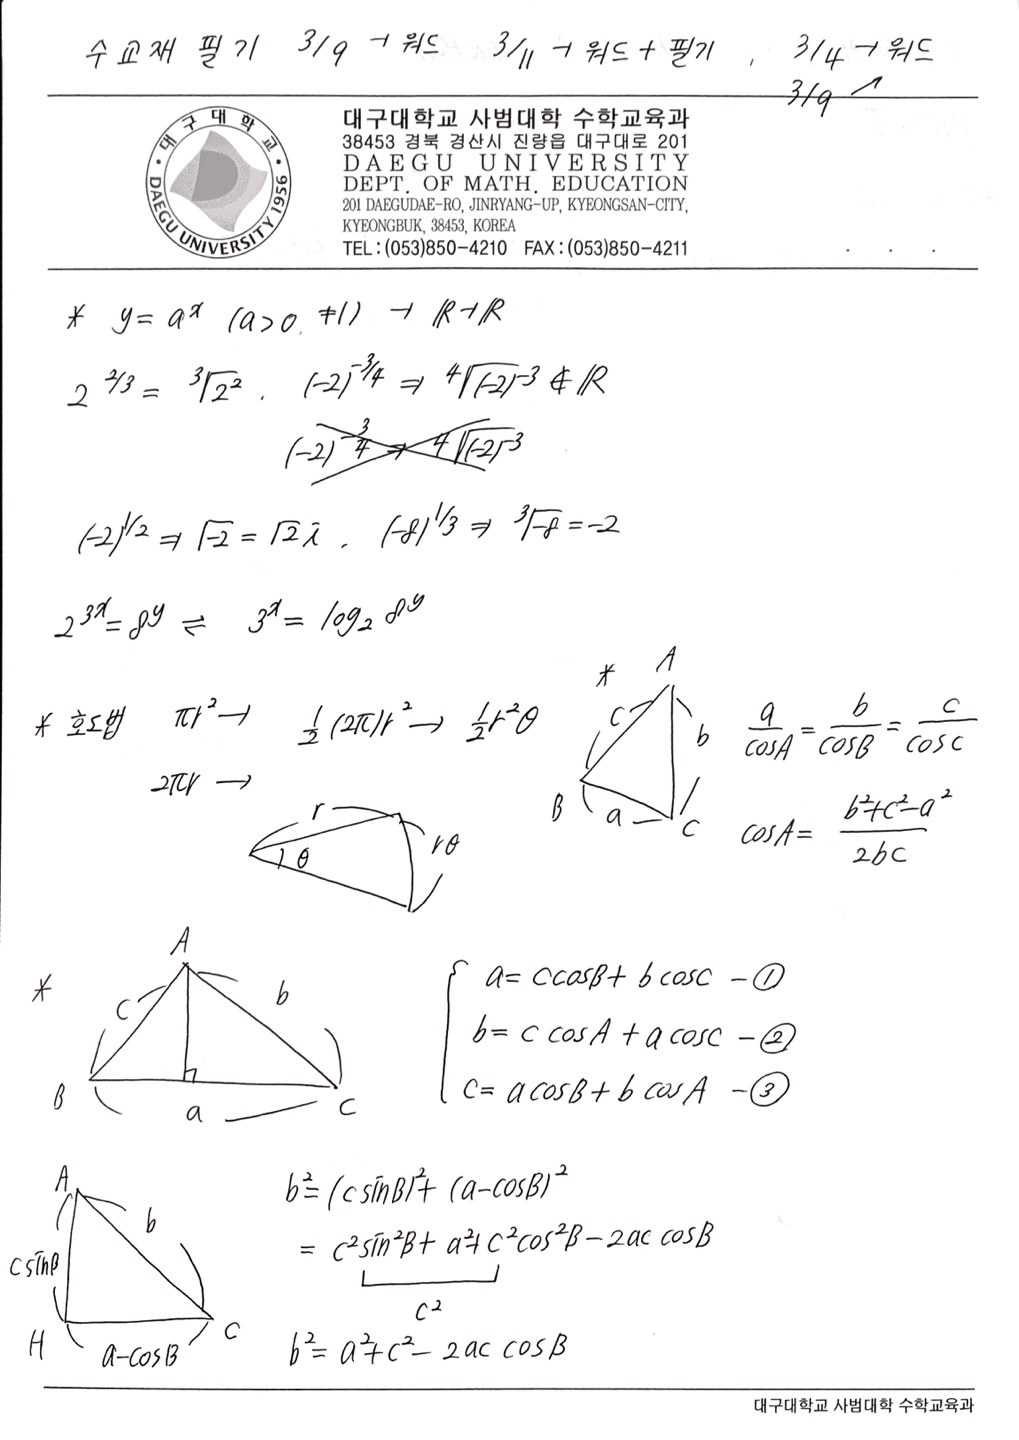 수교재 필기 3/9 → 워드 3/11 → 워드 + 필기 , 3/4 → 워드
3/9 ↗
대구대학교 DAEGU UNIVERSITY 1956
대구대학교 사범대학 수학교육과
38453 경북 경산시 진량읍 대구대로 201
DAEGU UNIVERSITY
DEPT. OF MATH. EDUCATION
201 DAEGUDAE-RO, JINRYANG-UP, KYEONGSAN-CITY,
KYEONGBUK, 38453, KOREA
TEL : (053)850-4210 FAX : (053)850-4211
* y = a^x (a>0, ≠1) → ℝ→ℝ
2^{2/3} = ∛2². (-2)^{-3/4} ⇒ ⁴√(-2)^{-3} ∉ ℝ
(-2)^{-3/4} → ⁴√(-2)^{-3}
(-2)^{1/2} ⇒ √-2 = √2 i . (-8)^{1/3} ⇒ ∛-8 = -2
2^{3x} = 8^y ⇌ 3^x = log₂ 8^y
* 호도법 πr² → ½(2π)r² → ½r²θ
2πr →
r
θ
rθ
* A
c
b
B
a
C
a/cosA = b/cosB = c/cosC
cosA = (b²+c²-a²)/2bc
* A
c
b
B
a
C
a = c cosB + b cosC - ①
b = c cosA + a cosC - ②
c = a cosB + b cosA - ③
A
b
c sinB
H
a-cosB
C
b² = (c sinB)² + (a-cosB)²
= c²sin²B + a² + c²cos²B - 2ac cosB
c²
b² = a² + c² - 2ac cosB
대구대학교 사범대학 수학교육과